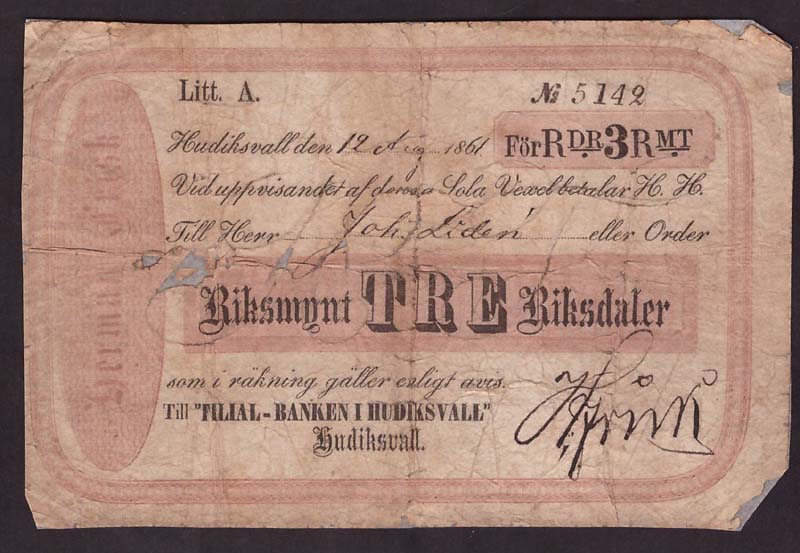 Litt. A.
№ 5142
Hudiksvall den 12 Aug 1861.
För RDR 3 RMT
Vid uppvisandet af denna Sola Vexel betalar H. H.
Till Herr Joh. Lidén eller Order
Riksmynt TRE Riksdaler
som i räkning gäller enligt avis.
Till "FILIAL-BANKEN I HUDIKSVALL"
Hudiksvall.